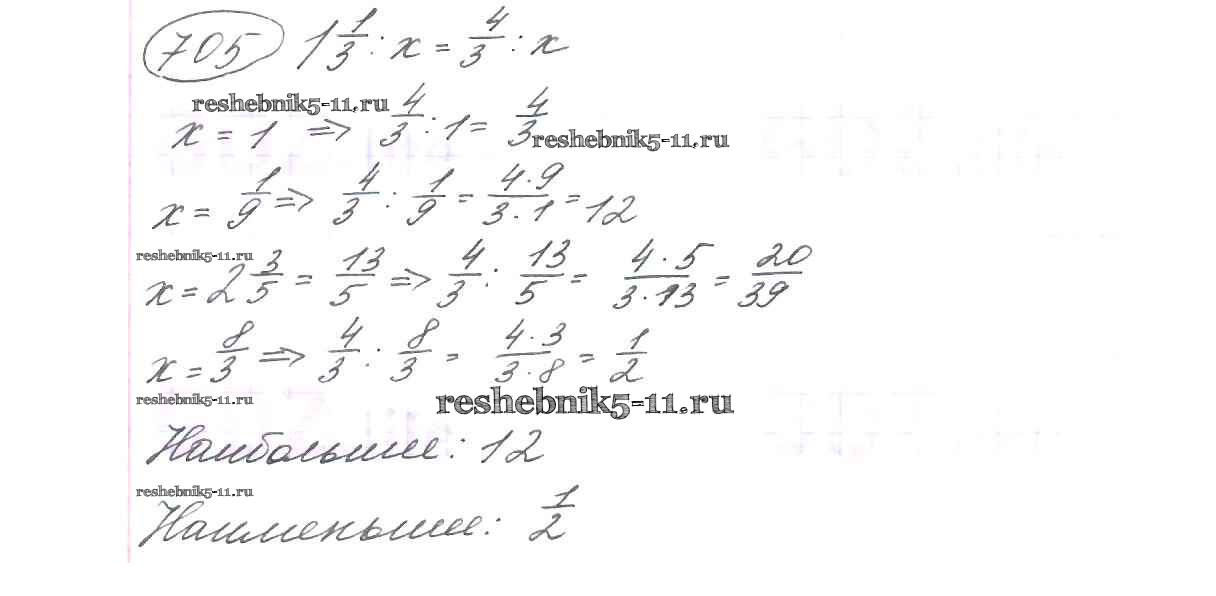 705 1 1/3 : x = 4/3 : x
reshebnik5-11.ru
x = 1 => 4/3 : 1 = 4/3
reshebnik5-11.ru
x = 1/9 => 4/3 : 1/9 = 4·9/3·1 = 12
reshebnik5-11.ru
x = 2 3/5 = 13/5 => 4/3 : 13/5 = 4·5/3·13 = 20/39
x = 8/3 => 4/3 : 8/3 = 4·3/3·8 = 1/2
reshebnik5-11.ru
reshebnik5-11.ru
Наибольшее: 12
reshebnik5-11.ru
Наименьшее: 1/2